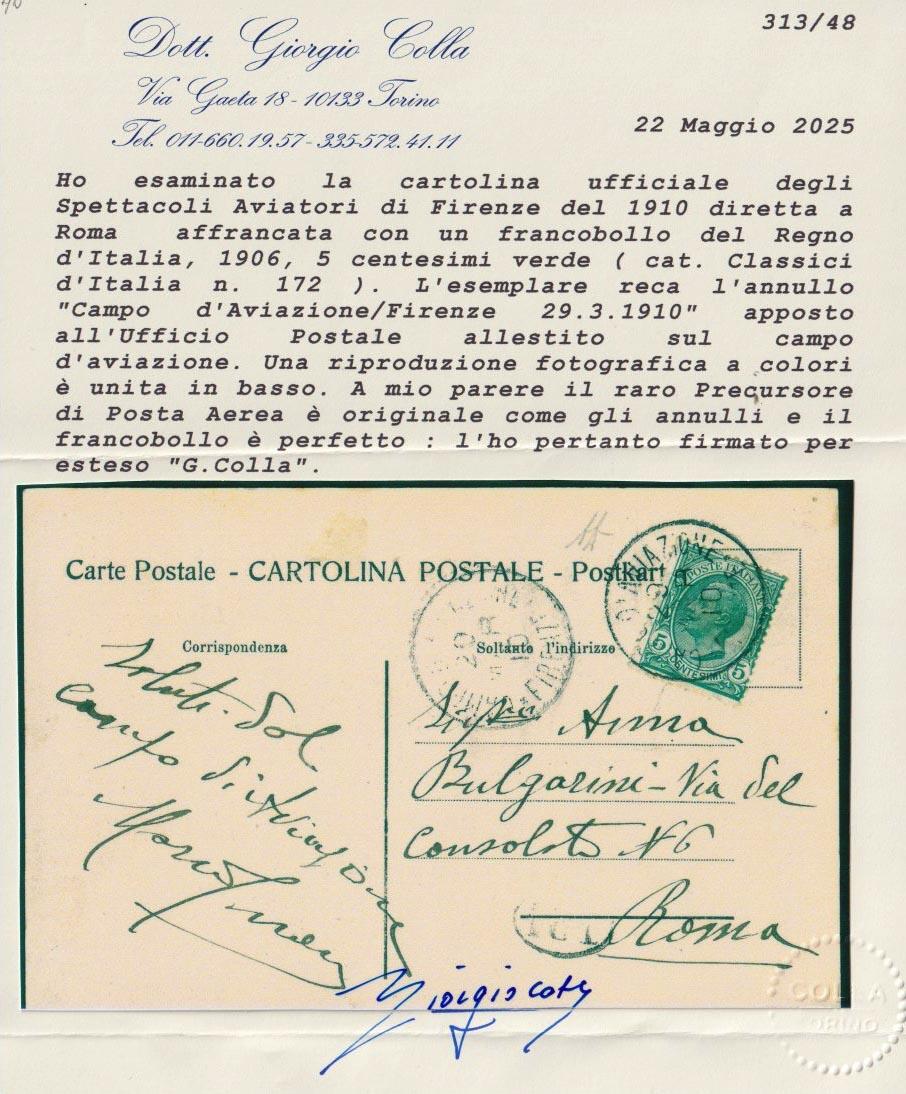 313/48
Dott. Giorgio Colla
Via Gaeta 18 - 10133 Torino
Tel. 011-660.19.57 - 335-572.41.11
22 Maggio 2025
Ho esaminato la cartolina ufficiale degli
Spettacoli Aviatori di Firenze del 1910 diretta a
Roma affrancata con un francobollo del Regno
d'Italia, 1906, 5 centesimi verde ( cat. Classici
d'Italia n. 172 ). L'esemplare reca l'annullo
"Campo d'Aviazione/Firenze 29.3.1910" apposto
all'Ufficio Postale allestito sul campo
d'aviazione. Una riproduzione fotografica a colori
è unita in basso. A mio parere il raro Precursore
di Posta Aerea è originale come gli annulli e il
francobollo è perfetto : l'ho pertanto firmato per
esteso "G.Colla".
Carte Postale - CARTOLINA POSTALE - Postkart
POSTE ITALIANE
5 CENTESIMI 5
Corrispondenza
Soltanto l'indirizzo
Saluti dal
campo di Aviazione
Anna
Bulgarini - Via del
Consolato N 6
Roma
Giorgio Colla
COLLA
TORINO